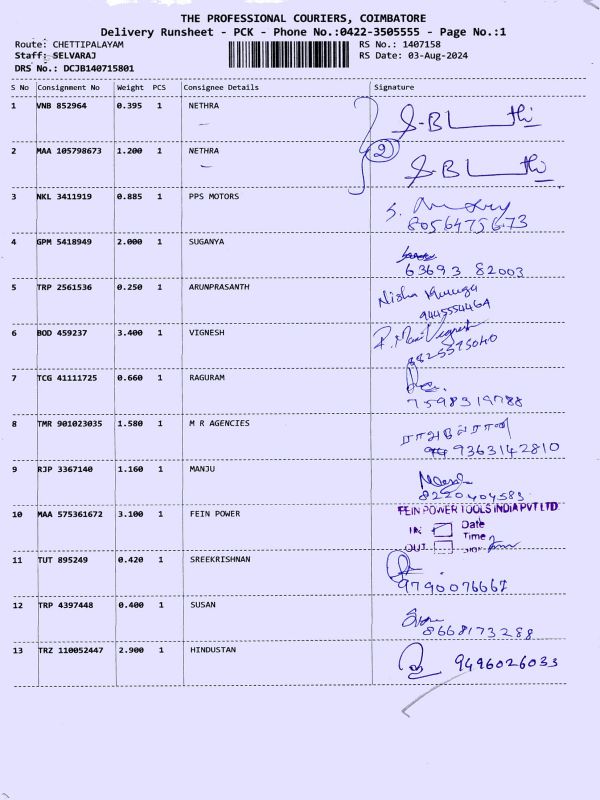 THE PROFESSIONAL COURIERS, COIMBATORE
Delivery Runsheet - PCK - Phone No.:0422-3505555 - Page No.:1
Route: CHETTIPALAYAM RS No.: 1407158
Staff: SELVARAJ RS Date: 03-Aug-2024
DRS No.: DCJB140715801
S No Consignment No Weight PCS Consignee Details Signature
1 VNB 852964 0.395 1 NETHRA
2 MAA 105798673 1.200 1 NETHRA
2
3 NKL 3411919 0.885 1 PPS MOTORS
8056475673
4 GPM 5418949 2.000 1 SUGANYA
63693 82003
5 TRP 2561536 0.250 1 ARUNPRASANTH
Nisha
9445554464
6 BOD 459237 3.400 1 VIGNESH
8825595040
7 TCG 41111725 0.660 1 RAGURAM
7598319788
8 TMR 901023035 1.580 1 M R AGENCIES
9363142810
9 RJP 3367140 1.160 1 MANJU
8220404583
10 MAA 575361672 3.100 1 FEIN POWER
FEIN POWER TOOLS INDIA PVT LTD
IN Date
Time
OUT Sign
11 TUT 895249 0.420 1 SREEKRISHNAN
9790076667
12 TRP 4397448 0.400 1 SUSAN
8668173288
13 TRZ 110052447 2.900 1 HINDUSTAN
9496026033